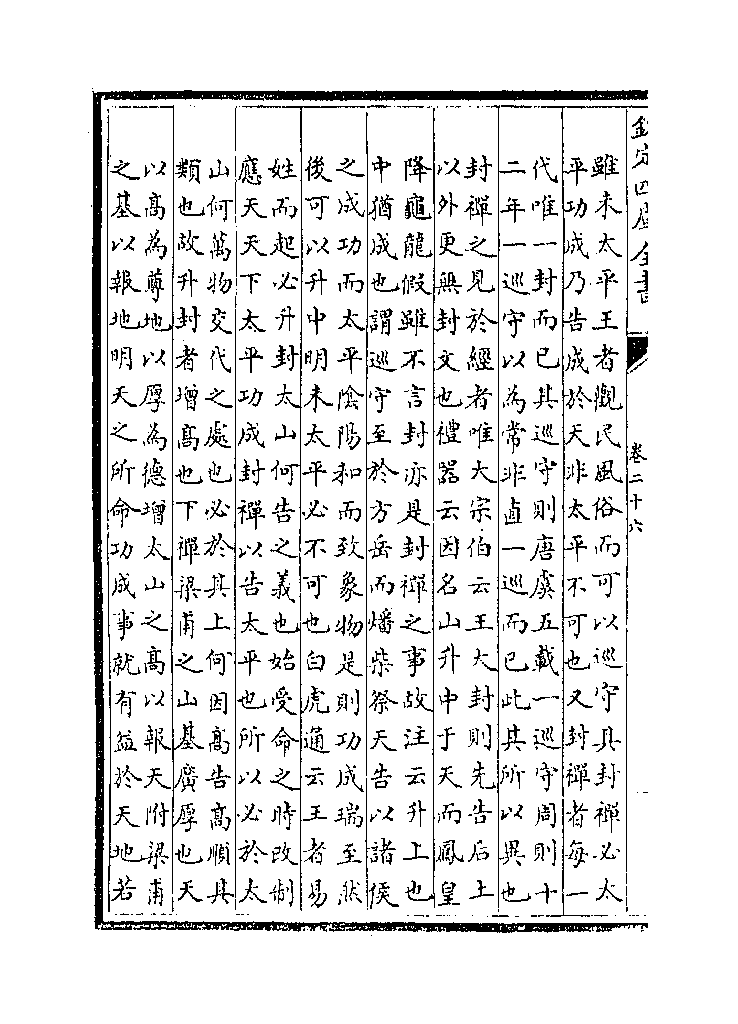 欽定四庫全書
卷二十六
雖未太平王者觀民風俗而可以巡守其封禪必太
平功成乃告成於天非太平不可也又封禪者每一
代唯一封而已其巡守則唐虞五載一巡守周則十
二年一巡守以為常非直一巡而已此其所以異也
封禪之見於經者唯大宗伯云王大封則先告后土
以外更無封文也禮器云因名山升中于天而鳳皇
降龜龍假雖不言封亦是封禪之事故注云升上也
中猶成也謂巡守至於方岳而燔柴祭天告以諸侯
之成功而太平陰陽和而致象物是則功成瑞至然
後可以升中明未太平必不可也白虎通云王者易
姓而起必升封太山何告之義也始受命之時改制
應天天下太平功成封禪以告太平也所以必於太
山何萬物交代之處也必於其上何因高告高順其
類也故升封者增高也下禪梁甫之山基廣厚也天
以高為尊地以厚為德增太山之高以報天附梁甫
之基以報地明天之所命功成事就有益於天地若